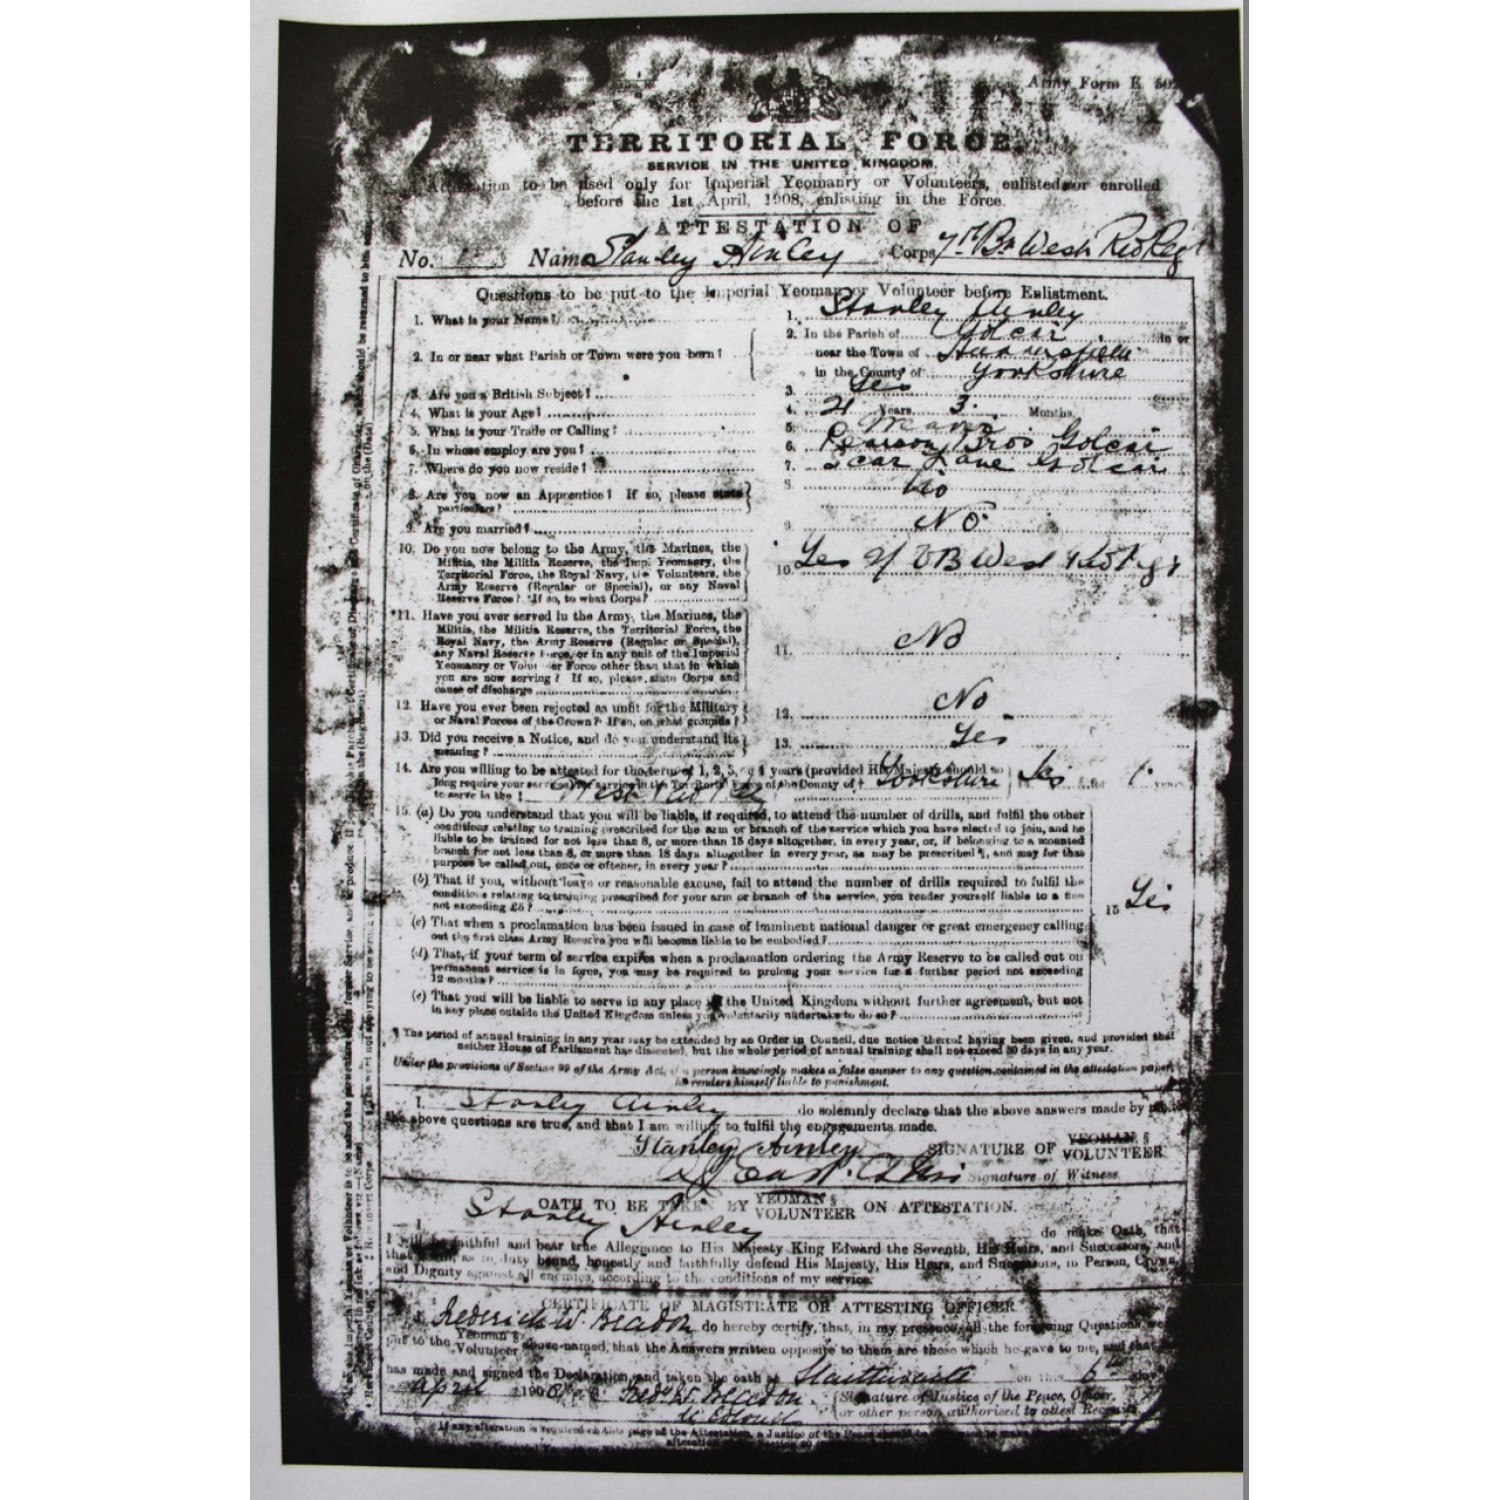 Army Form E
TERRITORIAL FORCE.
SERVICE IN THE UNITED KINGDOM.
Attestation to be used only for Imperial Yeomanry or Volunteers, enlisted or enrolled
before the 1st April, 1908, enlisting in the Force.
ATTESTATION OF
No. Name Stanley Ainley Corps 7th Bn West Rid Reg
Questions to be put to the Imperial Yeoman or Volunteer before Enlistment.
1. What is your Name? 1. Stanley Ainley
2. In or near what Parish or Town were you born? 2. In the Parish of Golcar in or
near the Town of Huddersfield
in the County of Yorkshire
3. Are you a British Subject? 3. Yes
4. What is your Age? 4. 21 Years 3 Months
5. What is your Trade or Calling? 5.
6. In whose employ are you? 6. Pearson Bros Golcar
7. Where do you now reside? 7. Scar Lane Golcar
8. Are you now an Apprentice? If so, please state 8. No
particulars?
9. Are you married? 9. No
10. Do you now belong to the Army, the Marines, the
Militia, the Militia Reserve, the Imp. Yeomanry, the
Territorial Force, the Royal Navy, the Volunteers, the
Army Reserve (Regular or Special), or any Naval
Reserve Force? If so, to what Corps? 10. Yes VB West
*11. Have you ever served in the Army, the Marines, the
Militia, the Militia Reserve, the Territorial Force, the
Royal Navy, the Army Reserve (Regular or Special),
any Naval Reserve Force, or in any unit of the Imperial
Yeomanry or Volunteer Force other than that in which
you are now serving? If so, please state Corps and
cause of discharge 11. No
12. Have you ever been rejected as unfit for the Military
or Naval Forces of the Crown? If so, on what grounds? 12. No
13. Did you receive a Notice, and do you understand its
meaning? 13. Yes
14. Are you willing to be attested for the term of 1, 2, 3, or 4 years (provided His Majesty should so
long require your services) for service in the Territorial Force of the County of † Yorkshire Yes for 1 years
to serve in the ‡ West Rid Reg
15. (a) Do you understand that you will be liable, if required, to attend the number of drills, and fulfil the other
conditions relating to training prescribed for the arm or branch of the service which you have elected to join, and be
liable to be trained for not less than 8, or more than 15 days altogether, in every year, or, if belonging to a mounted
branch for not less than 8, or more than 18 days altogether in every year, as may be prescribed ¶, and may for that
purpose be called out, once or oftener, in every year?
(b) That if you, without leave or reasonable excuse, fail to attend the number of drills required to fulfil the
conditions relating to training prescribed for your arm or branch of the service, you render yourself liable to a fine
not exceeding £5? 15 Yes
(c) That when a proclamation has been issued in case of imminent national danger or great emergency calling
out the first class Army Reserve you will become liable to be embodied?
(d) That, if your term of service expires when a proclamation ordering the Army Reserve to be called out on
permanent service is in force, you may be required to prolong your service for a further period not exceeding
12 months?
(e) That you will be liable to serve in any place in the United Kingdom without further agreement, but not
in any place outside the United Kingdom unless you voluntarily undertake to do so?
¶ The period of annual training in any year may be extended by an Order in Council, due notice thereof having been given, and provided that
neither House of Parliament has dissented, but the whole period of annual training shall not exceed 30 days in any year.
Under the provisions of Section 99 of the Army Act, if a person knowingly makes a false answer to any question contained in the attestation paper,
he renders himself liable to punishment.
I, Stanley Ainley do solemnly declare that the above answers made by me to
the above questions are true, and that I am willing to fulfil the engagements made.
Stanley Ainley SIGNATURE OF YEOMAN § VOLUNTEER
Signature of Witness
OATH TO BE TAKEN BY YEOMAN § VOLUNTEER ON ATTESTATION.
I Stanley Ainley do make Oath, that
I will be faithful and bear true Allegiance to His Majesty King Edward the Seventh, His Heirs, and Successors, and
that I will, as in duty bound, honestly and faithfully defend His Majesty, His Heirs, and Successors, in Person, Crown,
and Dignity against all enemies, according to the conditions of my service.
CERTIFICATE OF MAGISTRATE OR ATTESTING OFFICER
I Frederick W. Beadon do hereby certify, that, in my presence, all the foregoing Questions were
put to the Yeoman § Volunteer above-named, that the Answers written opposite to them are those which he gave to me, and that
has made and signed the Declaration, and taken the oath at Slaithwaite on this 6th day
April 1908 Fredk W. Beadon Signature of Justice of the Peace, Officer,
Lt Colonel or other person authorised to attest Recruits
If any alteration is required on this page of the Attestation, a Justice of the Peace should